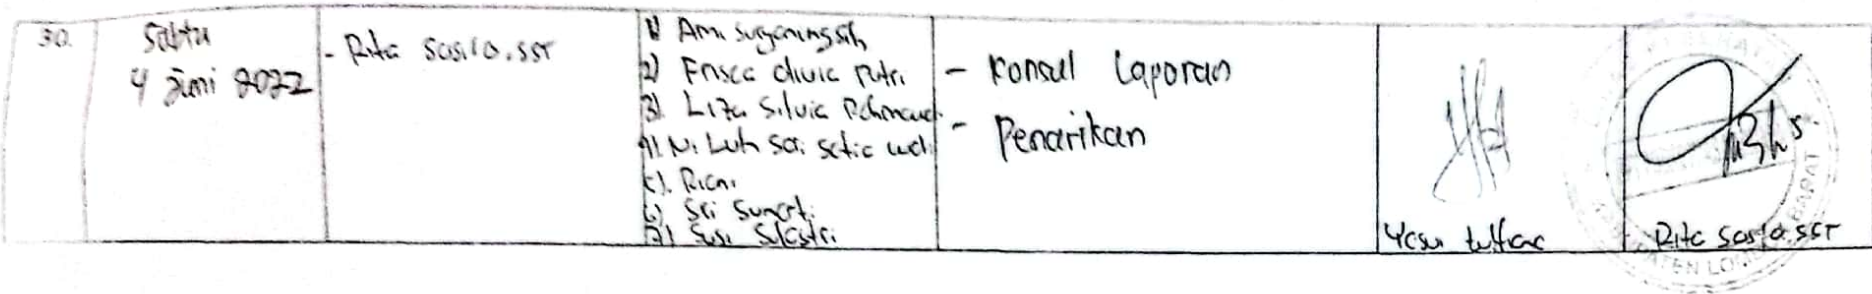 30.
Sabtu
4 Juni 2022
- Rita Sasila.SST
1) Ami Suryaningsih
2) Frisca divia Putri
3) Liza Silvia
4) Ni Luh Sri Setia
5). Riani
6) Sri Sunarti
7) Susi Silastri
- Konsul Laporan
- Penarikan
Rita Sasila.SST
BARAT